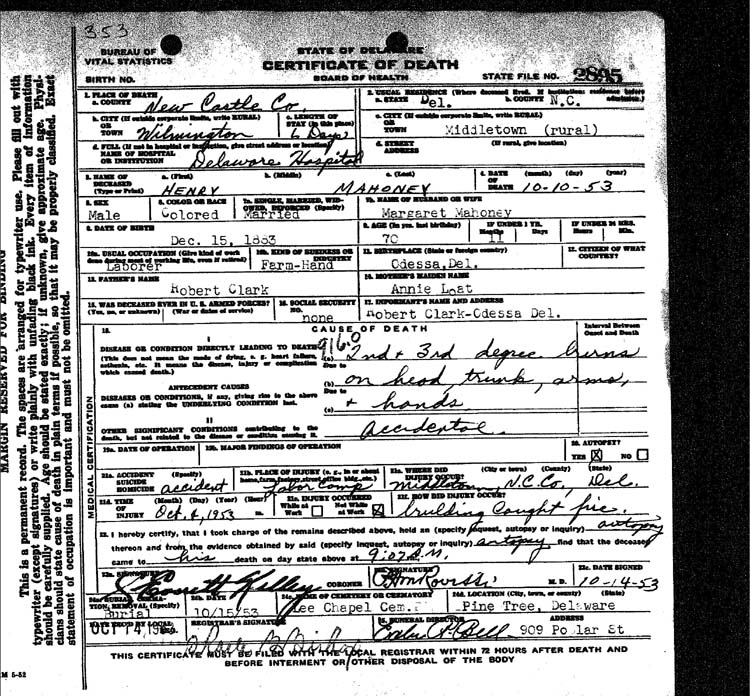 353
BUREAU OF
VITAL STATISTICS
STATE OF DELAWARE
CERTIFICATE OF DEATH
BOARD OF HEALTH
BIRTH NO.
STATE FILE NO. 2895
1. PLACE OF DEATH
a. COUNTY New Castle Co.
b. CITY (If outside corporate limits, write RURAL)
OR
TOWN Wilmington
c. LENGTH OF
STAY (in this place)
6 Days
d. FULL (If not in hospital or institution, give street address or location)
NAME OF HOSPITAL
OR INSTITUTION Delaware Hospital
2. USUAL RESIDENCE (Where deceased lived. If institution: residence before
admission.)
a. STATE Del. b. COUNTY N.C.
c. CITY (If outside corporate limits, write RURAL)
OR
TOWN Middletown (rural)
d. STREET (If rural, give location)
ADDRESS
3. NAME OF
DECEASED
(Type or Print)
a. (First) b. (Middle) c. (Last)
HENRY MAHONEY
4. DATE (month) (day) (year)
OF
DEATH 10-10-53
5. SEX
Male
6. COLOR OR RACE
Colored
7a. SINGLE, MARRIED, WID-
OWED, DIVORCED (Specify)
Married
7b. NAME OF HUSBAND OR WIFE
Margaret Mahoney
8. DATE OF BIRTH
Dec. 15, 1883
9. AGE (In yrs. last birthday)
70
IF UNDER 1 YR.
Months Days
11
IF UNDER 24 HRS.
Hours Min.
10a. USUAL OCCUPATION (Give kind of work
done during most of working life, even if retired)
Laborer
10b. KIND OF BUSINESS OR
INDUSTRY
Farm-Hand
11. BIRTHPLACE (State or foreign country)
Odessa, Del.
12. CITIZEN OF WHAT
COUNTRY?
13. FATHER'S NAME
Robert Clark
14. MOTHER'S MAIDEN NAME
Annie Loat
15. WAS DECEASED EVER IN U. S. ARMED FORCES?
(Yes, no, or unknown) (War or dates of service)
16. SOCIAL SECURITY
NO.
none
17. INFORMANT'S NAME AND ADDRESS
Robert Clark-Odessa Del.
18. CAUSE OF DEATH
Interval Between
Onset and Death
I
DISEASE OR CONDITION DIRECTLY LEADING TO DEATH
(This does not mean the mode of dying, e. g. heart failure,
asthenia, etc. It means the disease, injury or complication
which caused death.)
9160
(a) 2nd + 3rd degree burns
Due to
(b) on head, trunk, arms,
Due to
(c) + hands
ANTECEDENT CAUSES
DISEASES OR CONDITIONS, if any, giving rise to the above
cause (a) stating the UNDERLYING CONDITION last.
II
OTHER SIGNIFICANT CONDITIONS contributing to the
death, but not related to the disease or condition causing it.
accidental.
19a. DATE OF OPERATION
19b. MAJOR FINDINGS OF OPERATION
20. AUTOPSY?
YES X NO
21a. ACCIDENT (Specify)
SUICIDE
HOMICIDE accident
21b. PLACE OF INJURY (e. g., in or about
home, farm, factory, street, office bldg., etc.)
labor Camp
21c. WHERE DID (City or town) (County) (State)
INJURY OCCUR?
Middletown, N.C.Co., Del.
21d. TIME (Month) (Day) (Year) (Hour)
OF
INJURY Oct. 4, 1953
21e. INJURY OCCURRED
While at Not While
Work at Work X
21f. HOW DID INJURY OCCUR?
building caught fire.
22. I hereby certify, that I took charge of the remains described above, held an (specify inquest, autopsy or inquiry) autopsy
thereon and from the evidence obtained by said (specify inquest, autopsy or inquiry) autopsy find that the deceased
came to his death on day state above at
CORONER
SIGNATURE
M. D.
23c. DATE SIGNED
10-14-53
24a. BURIAL, CREMA-
TION, REMOVAL (Specify)
Burial
24b. DATE
10/15/53
24c. NAME OF CEMETERY OR CREMATORY
Lee Chapel Cem.
24d. LOCATION (City, town, or county) (State)
Pine Tree, Delaware
DATE REC'D BY LOCAL
OCT 14
REGISTRAR'S SIGNATURE
25. FUNERAL DIRECTOR
Bell
ADDRESS
909 Poplar St
THIS CERTIFICATE MUST BE FILED WITH THE LOCAL REGISTRAR WITHIN 72 HOURS AFTER DEATH AND
BEFORE INTERMENT OR OTHER DISPOSAL OF THE BODY
MEDICAL CERTIFICATION
MARGIN RESERVED FOR BINDING
This is a permanent record. The spaces are arranged for typewriter use. Please fill out with
typewriter (except signatures) or write plainly with unfading black ink. Every item of information
should be carefully supplied. Age should be stated exactly; if unknown, give approximate age. Physi-
cians should state cause of death in plain terms if possible, so that it may be properly classified. Exact
statement of occupation is important and must not be omitted.
M 5-52